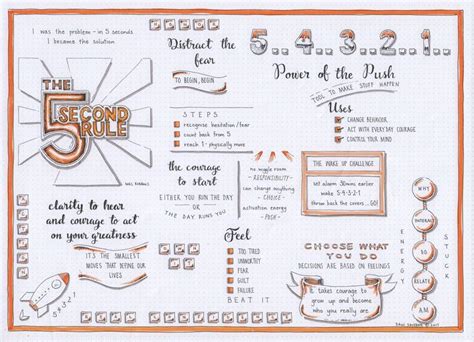 I was the problem - in 5 seconds
I became the solution
THE
5
SECOND
RULE
MEL ROBBINS
Distract the
fear
TO BEGIN, BEGIN
STEPS
recognise hesitation/fear
count back from 5
reach 1 - physically move
5.4.3.2.1.
Power of the Push
TOOL TO MAKE STUFF HAPPEN
Uses
CHANGE BEHAVIOR
ACT WITH EVERYDAY COURAGE
CONTROL YOUR MIND
the courage
to start
EITHER YOU RUN THE DAY
or
THE DAY RUNS YOU
no wiggle room
- RESPONSIBILITY -
can change anything
- CHOICE -
activation energy
- PUSH -
THE WAKE UP CHALLENGE
set alarm 30mins earlier
wake 5-4-3-2-1
throw back the covers...GO!
clarity to hear
and courage to act
on your greatness
IT'S THE SMALLEST
MOVES THAT DEFINE OUR
LIVES
5,4,3,2,1
Feel
TOO TIRED
UNWORTHY
FEAR
GUILT
FAILURE
BEAT IT
CHOOSE WHAT
YOU DO
DECISIONS ARE BASED ON FEELINGS
it takes courage to
grow up and become
who you really are
ENERGY
WHY
INTERACT
TO
RELATE
I.AM
STUCK